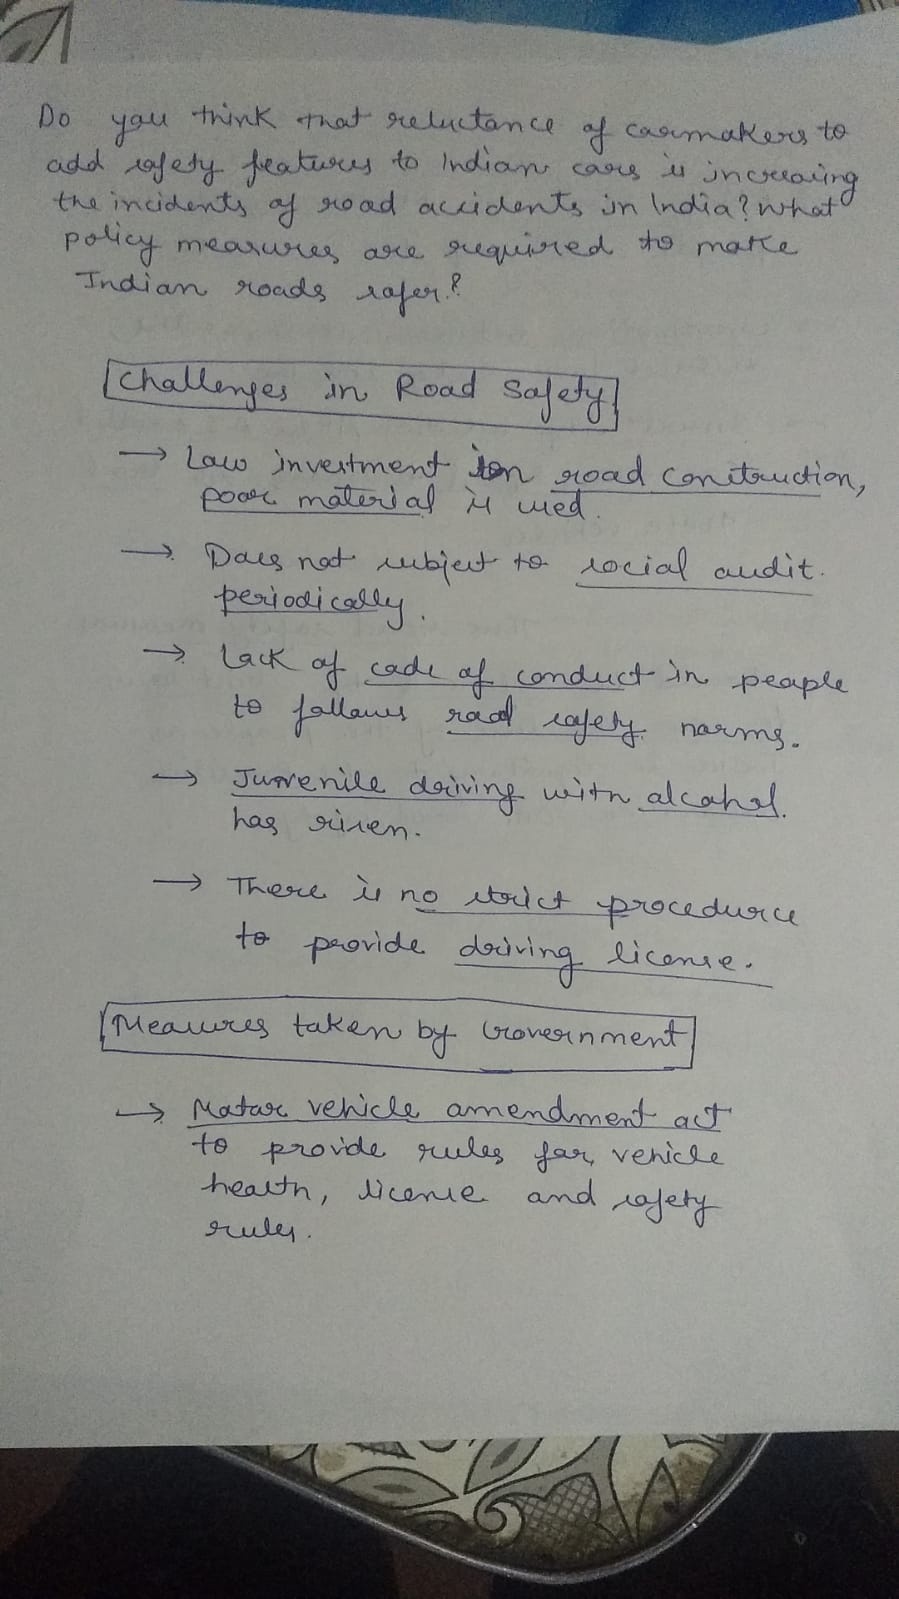 Do you think that reluctance of carmakers to
add safety features to Indian cars is increasing
the incidents of road accidents in India? What
policy measures are required to make
Indian roads safer?
Challenges in Road Safety
→ Low investment on road construction,
poor material is used.
→ Does not subject to social audit
periodically.
→ Lack of code of conduct in people
to follows road safety norms.
→ Juvenile driving with alcohol
has risen.
→ There is no strict procedure
to provide driving license.
Measures taken by Government
→ Motor vehicle amendment act
to provide rules for vehicle
health, license and safety
rules.